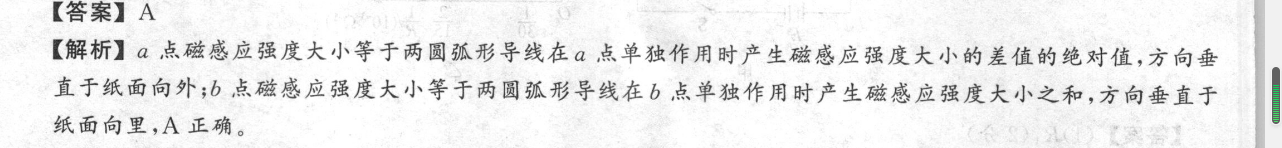 【答案】A
【解析】a 点磁感应强度大小等于两圆弧形导线在 a 点单独作用时产生磁感应强度大小的差值的绝对值,方向垂
直于纸面向外;b 点磁感应强度大小等于两圆弧形导线在 b 点单独作用时产生磁感应强度大小之和,方向垂直于
纸面向里,A 正确。